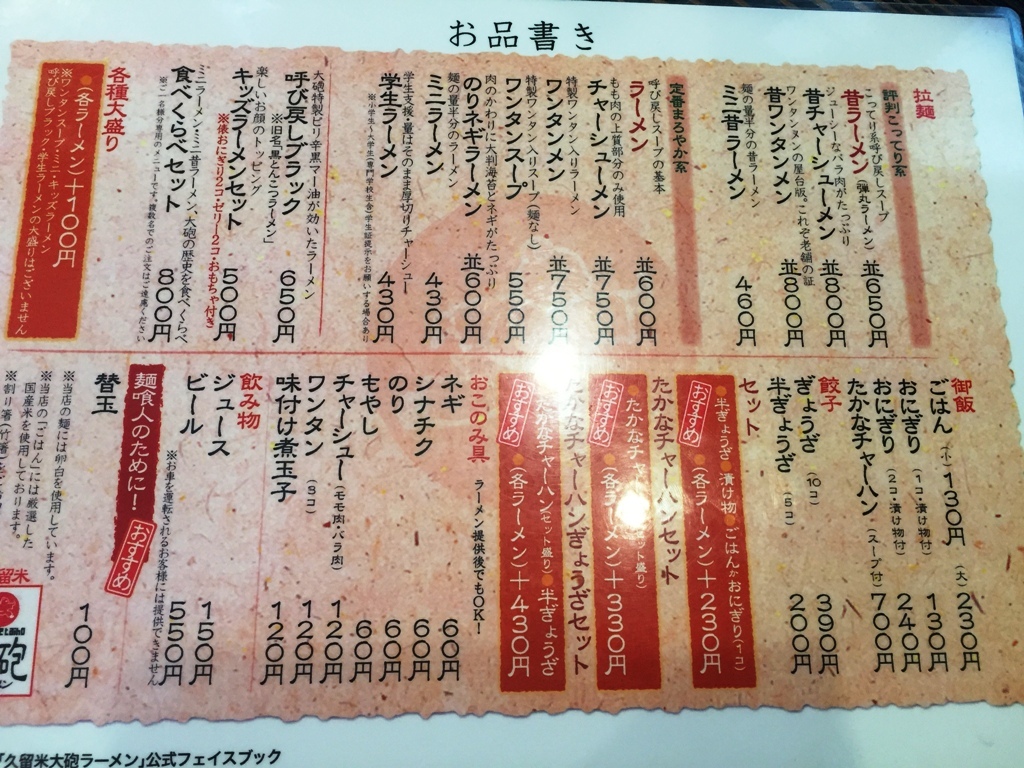 お品書き
拉麺
評判こってり系
こってり系呼び戻しスープ
昔ラーメン（弾丸ラーメン） 並650円
ジューシーなバラ肉がたっぷり
昔チャーシューメン 並800円
ワンタンメンの屋台版。これぞ老舗の証
昔ワンタンメン 並800円
麺の量半分の昔ラーメン
ミニ昔ラーメン 460円
定番まろやか系
呼び戻しスープの基本
ラーメン 並600円
もも肉の上質部分のみ使用
チャーシューメン 並750円
特製ワンタン入りラーメン
ワンタンメン 並750円
特製ワンタン入りスープ（麺なし）
ワンタンスープ 550円
肉のかわりに大判海苔とネギがたっぷり
のりネギラーメン 並600円
麺の量半分のラーメン
ミニラーメン 430円
学生支援・量はそのまま厚切りチャーシュー
学生ラーメン 430円
※小学生〜大学生（専門学校生含）学生証提示をお願いする場合あり
大砲特製ピリ辛黒マー油が効いたラーメン
呼び戻しブラック 650円
※旧名「黒とんこつラーメン」
楽しいお顔のトッピング
キッズラーメンセット 500円
※俵おにぎり2コ・ゼリー2コ・おもちゃ付き
ミニラーメン・ミニ昔ラーメン、大砲の歴史を食べくらべ
食べくらべセット 800円
※ご一名様分専用のメニューです。複数名でのご注文はご遠慮ください
各種大盛り
●（各ラーメン）＋100円
※ワンタンスープ・ミニ・キッズラーメン
呼び戻しブラック・学生ラーメンの大盛りはございません
御飯
ごはん （小）130円 （大）230円
おにぎり （1コ・漬け物付） 130円
おにぎり （2コ・漬け物付） 240円
たかなチャーハン （スープ付） 700円
餃子
ぎょうざ （10コ） 390円
半ぎょうざ （5コ） 200円
セット
半ぎょうざ●漬け物●ごはんかおにぎり（1コ）
おすすめ ●（各ラーメン）＋230円
たかなチャーハンセット
●たかなチャーハン（セット盛り）
おすすめ ●（各ラーメン）＋330円
たかなチャーハンぎょうざセット
●たかなチャーハン（セット盛り）●半ぎょうざ
おすすめ ●（各ラーメン）＋430円
おこのみ具 ラーメン提供後でもOK！
ネギ 60円
シナチク 60円
のり 60円
もやし 60円
チャーシュー （モモ肉・バラ肉） 120円
ワンタン （5コ） 120円
味付け煮玉子 120円
飲み物
ジュース 150円
ビール 550円
※お車を運転されるお客様には提供できません
麺喰人のために！ おすすめ
替玉 100円
※当店の麺には卵白を使用しています。
※当店の「ごはん」には厳選した
国産米を使用しております。
留米
砲
「久留米大砲ラーメン」公式フェイスブック